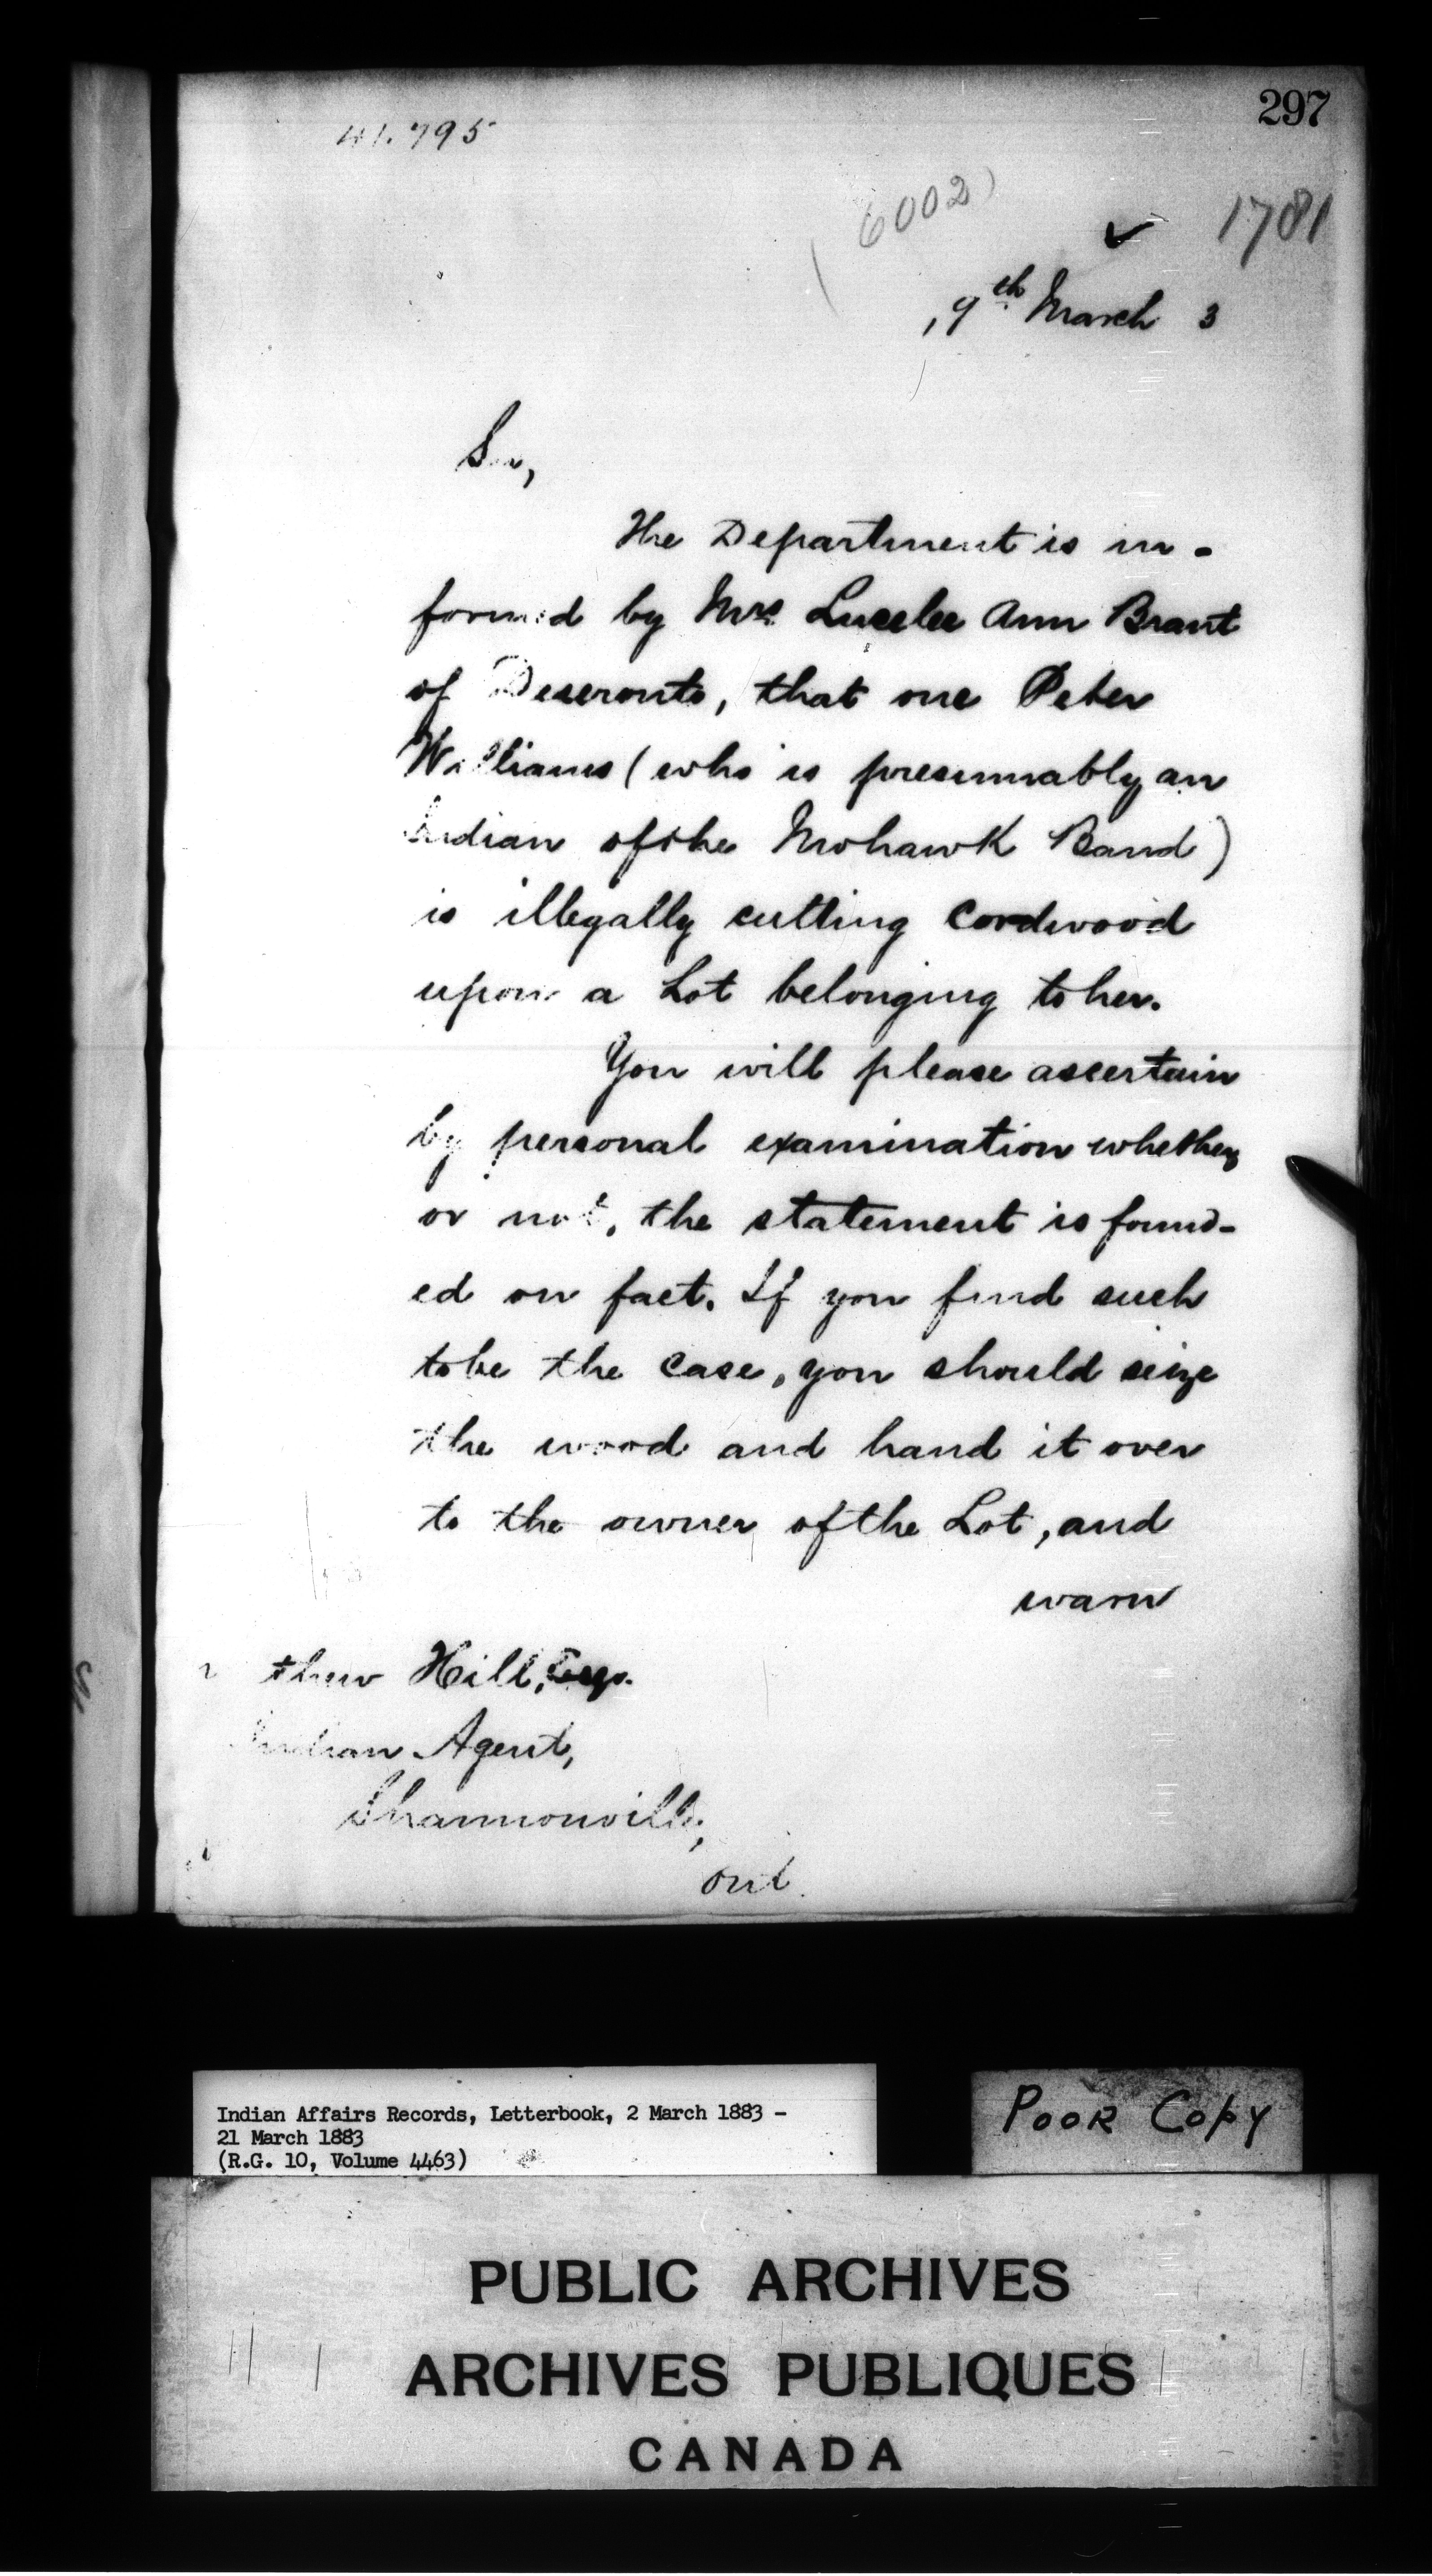 297
41.795
(6002)
1781
9th March 3
Sir,
The Department is in-
formed by Mrs Lucelee Ann Brant
of Deseronto, that one Peter
Williams (who is presumably an
Indian of the Mohawk Band)
is illegally cutting Cordwood
upon a Lot belonging to her.
You will please ascertain
by personal examination whether
or not, the statement is found-
ed on fact. If you find such
to be the case, you should seize
the wood and hand it over
to the owner of the Lot, and
warn
thew Hill, Esq.
Indian Agent,
Shannonville,
Ont.
Indian Affairs Records, Letterbook, 2 March 1883 -
21 March 1883
(R.G. 10, Volume 4463)
POOR COPY
PUBLIC ARCHIVES
ARCHIVES PUBLIQUES
CANADA